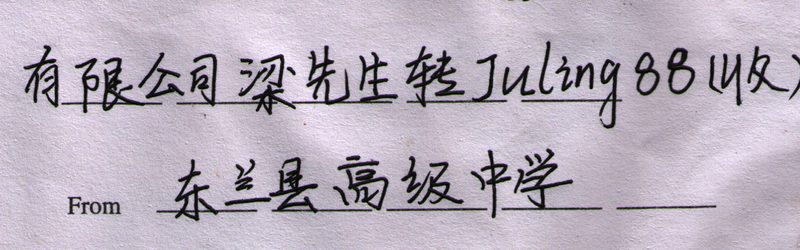 有限公司梁先生转Juling88(收)
From 东兰县高级中学